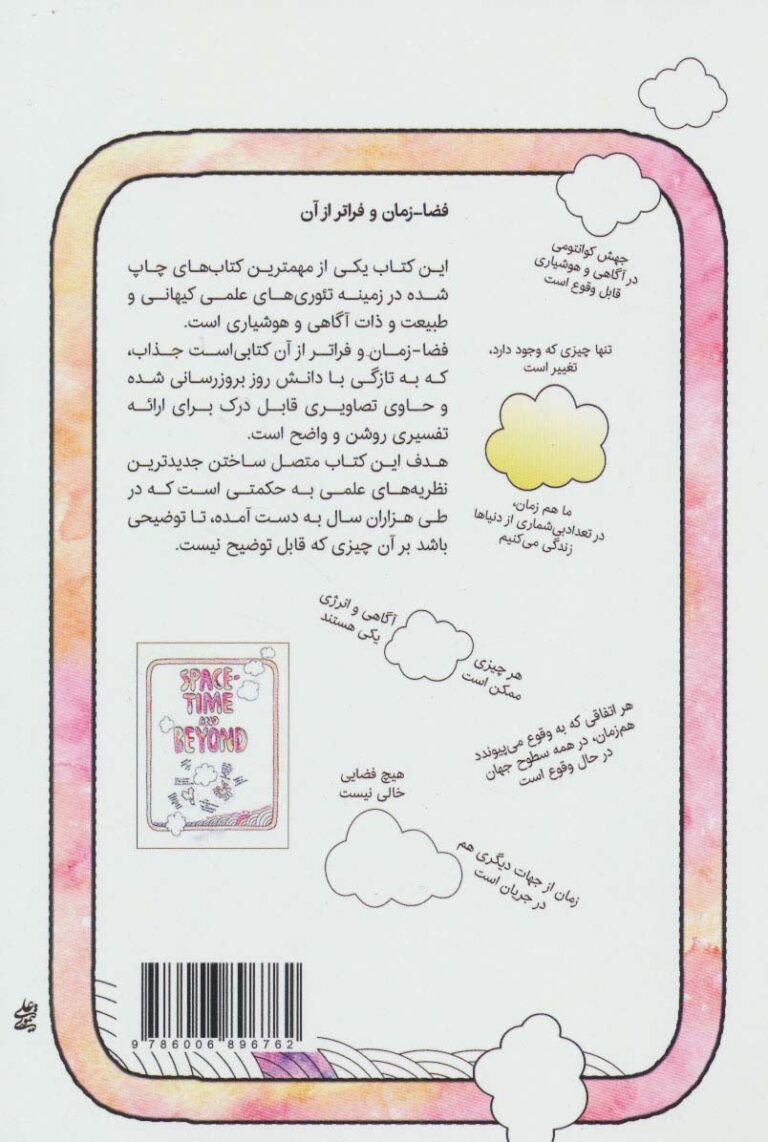 فضا-زمان و فراتر از آن
این کتاب یکی از مهمترین کتاب‌های چاپ
شده در زمینه تئوری‌های علمی کیهانی و
طبیعت و ذات آگاهی و هوشیاری است.
فضا-زمان و فراتر از آن کتابی‌است جذاب،
که به تازگی با دانش روز بروزرسانی شده
و حاوی تصاویری قابل درک برای ارائه
تفسیری روشن و واضح است.
هدف این کتاب متصل ساختن جدیدترین
نظریه‌های علمی به حکمتی است که در
طی هزاران سال به دست آمده، تا توضیحی
باشد بر آن چیزی که قابل توضیح نیست.
جهش کوانتومی
در آگاهی و هوشیاری
قابل وقوع است
تنها چیزی که وجود دارد،
تغییر است
ما هم زمان،
در تعدادبی‌شماری از دنیاها
زندگی می‌کنیم
آگاهی و انرژی
یکی هستند
هر چیزی
ممکن است
هر اتفاقی که به وقوع می‌پیوندد
هم‌زمان، در همه سطوح جهان
در حال وقوع است
هیچ فضایی
خالی نیست
زمان از جهات دیگری هم
در جریان است
SPACE-
TIME
AND
BEYOND
9 786006 896762